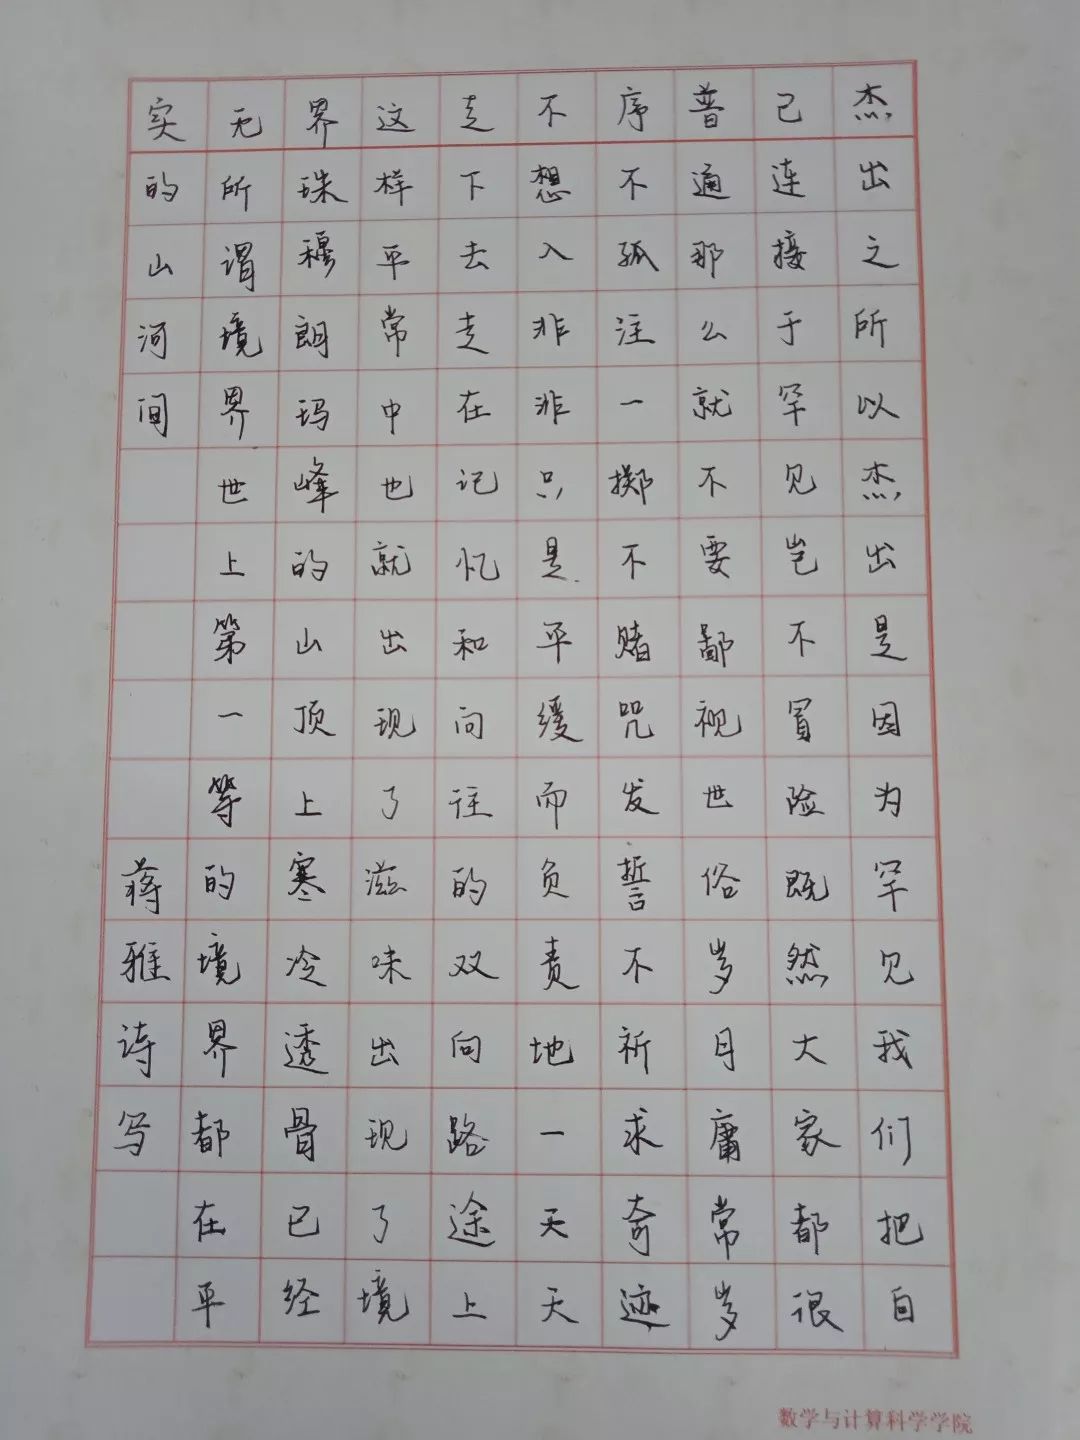 杰出之所以杰出是因为罕见我们把自
己连接于罕见岂不冒险既然大家都很
普通那么就不要鄙视世俗岁月庸常岁
序不孤注一掷不赌咒发誓不祈求奇迹
不想入非非只是平缓而负责地一天天
走下去走在记忆和向往的双向路途上
这样平常中也就出现了滋味出现了境
界珠穆朗玛峰的山顶上寒冷透骨已经
无所谓境界世上第一等的境界都在平
实的山河间
蒋雅诗写
数学与计算科学学院